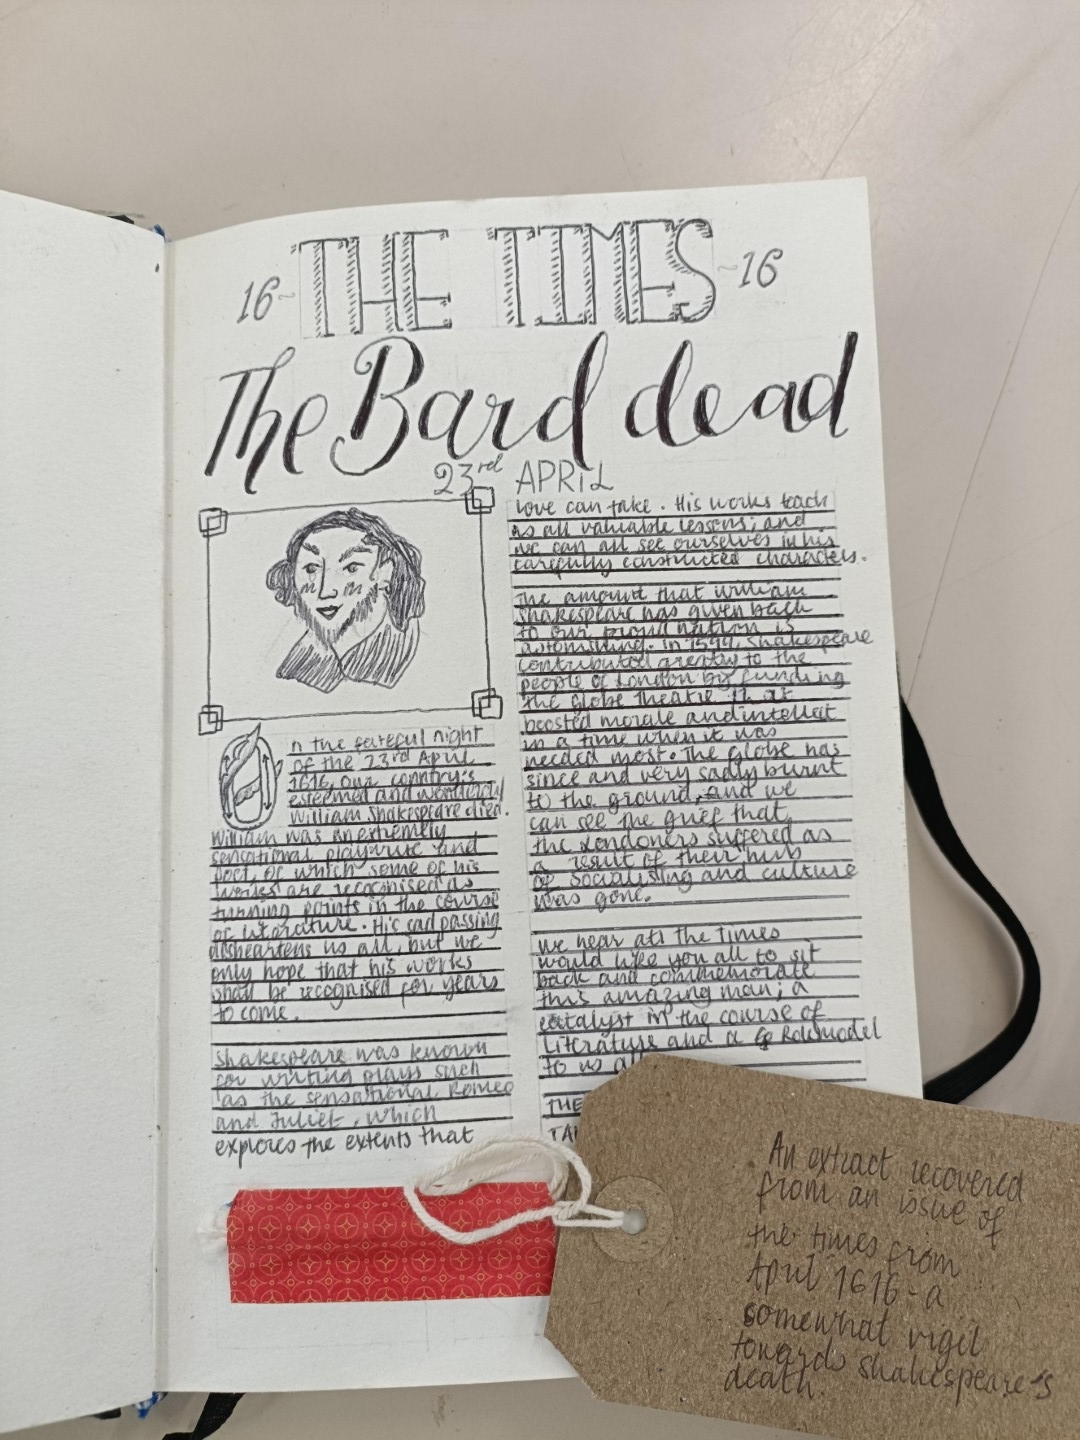 16- THE TIMES -16
The Bard dead
23rd APRIL
On the fateful night
of the 23rd April
1616, our country's
esteemed and wonderful
William Shakespeare died.
William was an extremely
sensational playwrite and
poet, of which some of his
works are recognised as
turning points in the course
of literature. His sad passing
disheartens us all, but we
only hope that his works
shall be recognised for years
to come.
Shakespeare was known
for writing plays such
as the sensational Romeo
and Juliet, which
explores the extents that
love can take. His works teach
us all valuable lessons; and
we can all see ourselves in his
carefully constructed characters.
The amount that William
Shakespeare has given back
to our proud nation is
astonishing. In 1599, Shakespeare
contributed greatly to the
people of London by funding
the globe theatre. It at
boosted morale and intellect
in a time when it was
needed most. The Globe has
since and very sadly burnt
to the ground, and we
can see the grief that
the Londoners suffered as
a result of their hub
of socialising and culture
was gone.
We hear ats the Times
would like you all to sit
back and commemorate
this amazing man; a
catalyst in the course of
literature and a Rolemodel
to us al
THE
TA
An extract recovered
from an issue of
the times from
April 1616 - a
somewhat vigil
towards Shakespeare's
death.